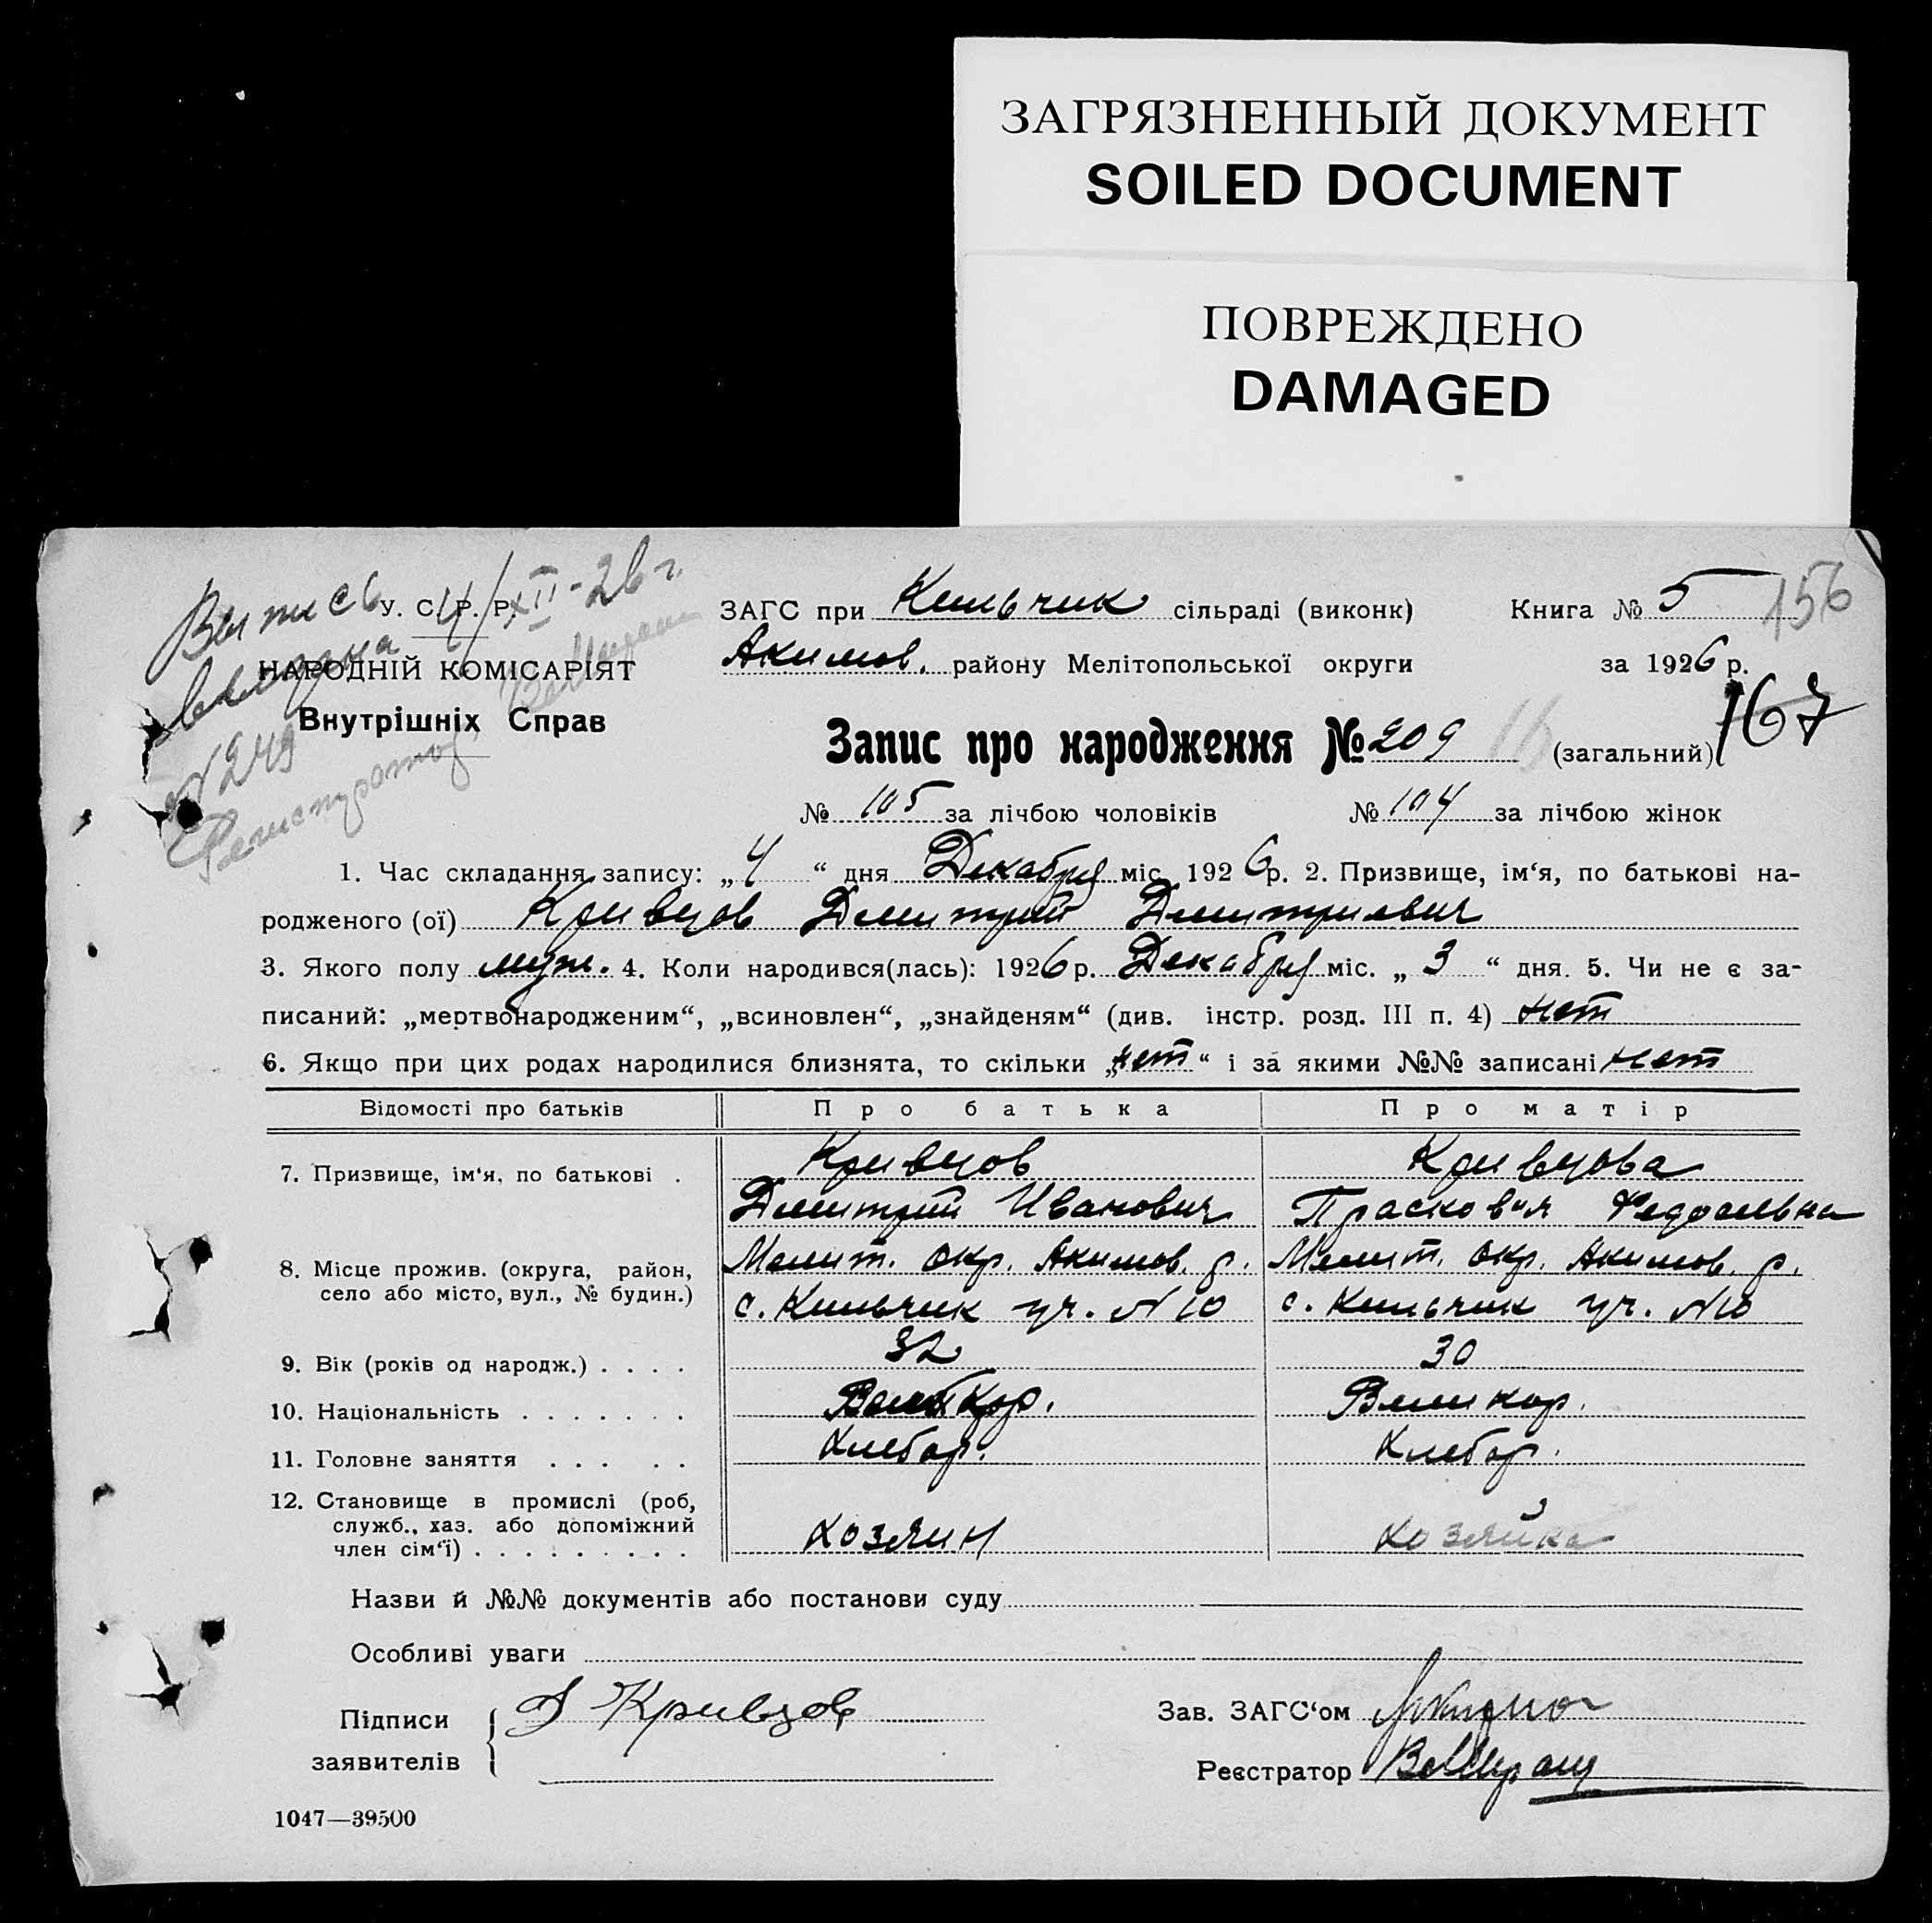 ЗАГРЯЗНЕННЫЙ ДОКУМЕНТ
SOILED DOCUMENT
ПОВРЕЖДЕНО
DAMAGED
Выпись 4/XII-26 г.
выдана
N 249
Регистратор
У. С. Р. Р.
НАРОДНІЙ КОМІСАРІЯТ
Внутрішніх Справ
ЗАГС при Кильчик сільраді (виконк) Книга № 5 156
Акимов. району Мелітопольської округи за 1926 р.
167
Запис про народження № 209 16 (загальний)
№ 105 за лічбою чоловіків № 104 за лічбою жінок
1. Час складання запису: „4“ дня Декабря міс. 1926 р. 2. Призвище, ім‘я, по батькові на-
родженого (ої) Кривцов Дмитрий Дмитриевич
3. Якого полу муж. 4. Коли народився(лась): 1926 р. Декабря міс. „3“ дня. 5. Чи не є за-
писаний: „мертвонародженим“, „всиновлен“, „знайденям“ (див. інстр. розд. III п. 4) нет
6. Якщо при цих родах народилися близнята, то скільки „нет“ і за якими №№ записані нет
Відомості про батьків Про батька Про матір
7. Призвище, ім‘я, по батькові . Кривцов Кривцова
Дмитрий Иванович Прасковия Федосеевна
8. Місце прожив. (округа, район, Мелит. окр. Акимов. р. Мелит. окр. Акимов. р.
село або місто, вул., № будин.) с. Кильчик уч. N 10 с. Кильчик уч. N 10
9. Вік (років од народж.) . . . . 32 30
10. Національність . . . . . . . Великор. Великор.
11. Головне заняття . . . . . Хлебор. Хлебор.
12. Становище в промислі (роб,
служб., хаз. або допоміжний
член сім‘ї) . . . . . . . . . хозяин хозяйка
Назви й №№ документів або постанови суду
Особливі уваги
Підписи
заявителів
Д Кривцов
Зав. ЗАГС‘ом
Реєстратор
1047—39500